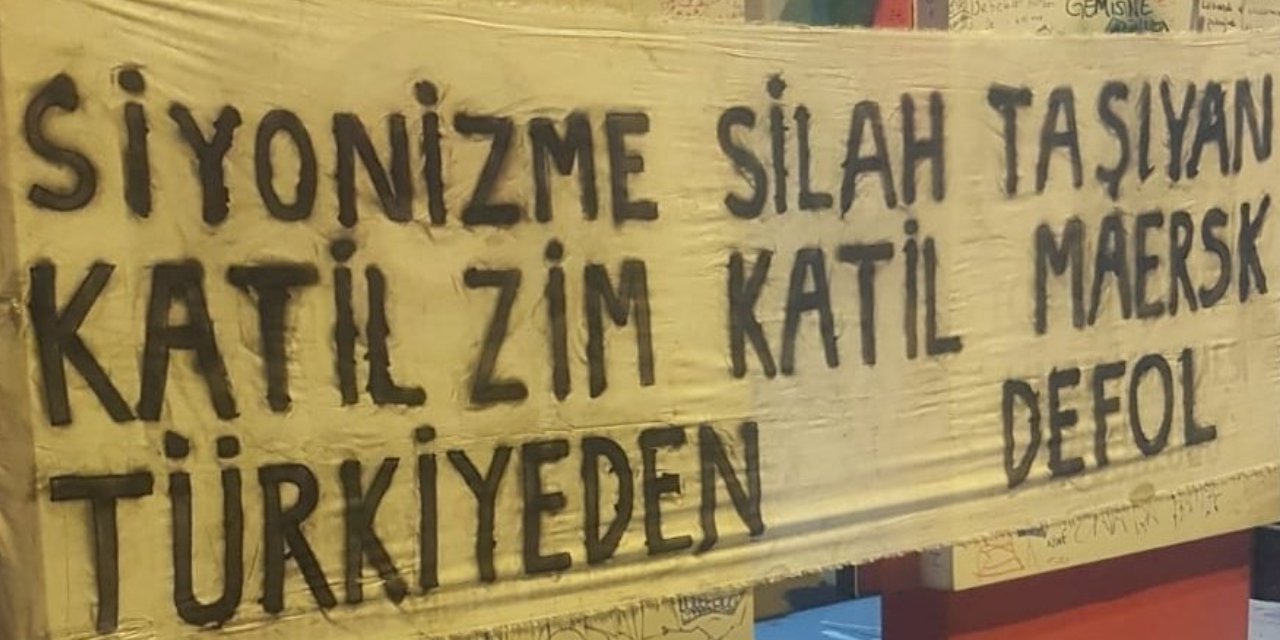 GEMİSİNE
SİYONİZME SİLAH TAŞIYAN
KATİL ZİM KATİL MAERSK
TÜRKİYEDEN DEFOL